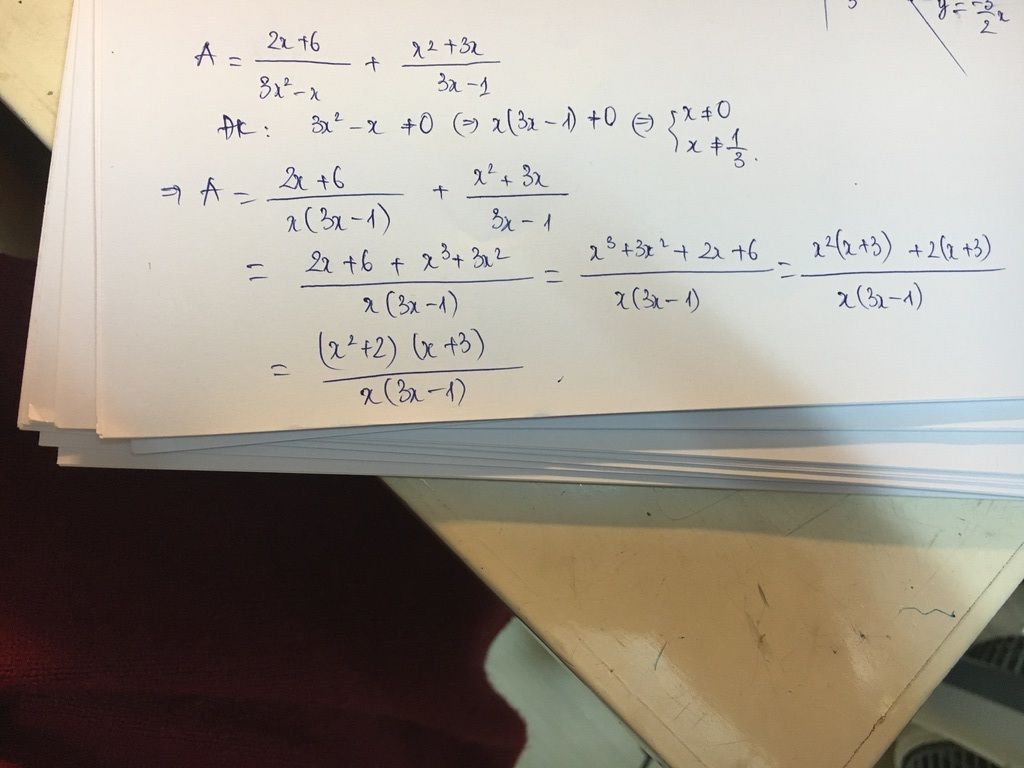 y = -5/2 x
A = (2x+6)/(3x² - x) + (x² + 3x)/(3x - 1)
ĐK: 3x² - x ≠ 0 ⇔ x(3x - 1) ≠ 0 ⇔ { x ≠ 0
x ≠ 1/3.
⇒ A = (2x+6)/(x(3x-1)) + (x² + 3x)/(3x - 1)
= (2x + 6 + x³ + 3x²)/(x(3x-1)) = (x³ + 3x² + 2x + 6)/(x(3x-1)) = (x²(x+3) + 2(x+3))/(x(3x-1))
= ((x²+2)(x+3))/(x(3x-1))